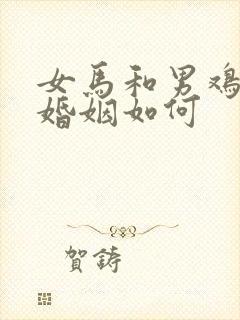 女馬和男鸡
婚姻如何
賀鋳